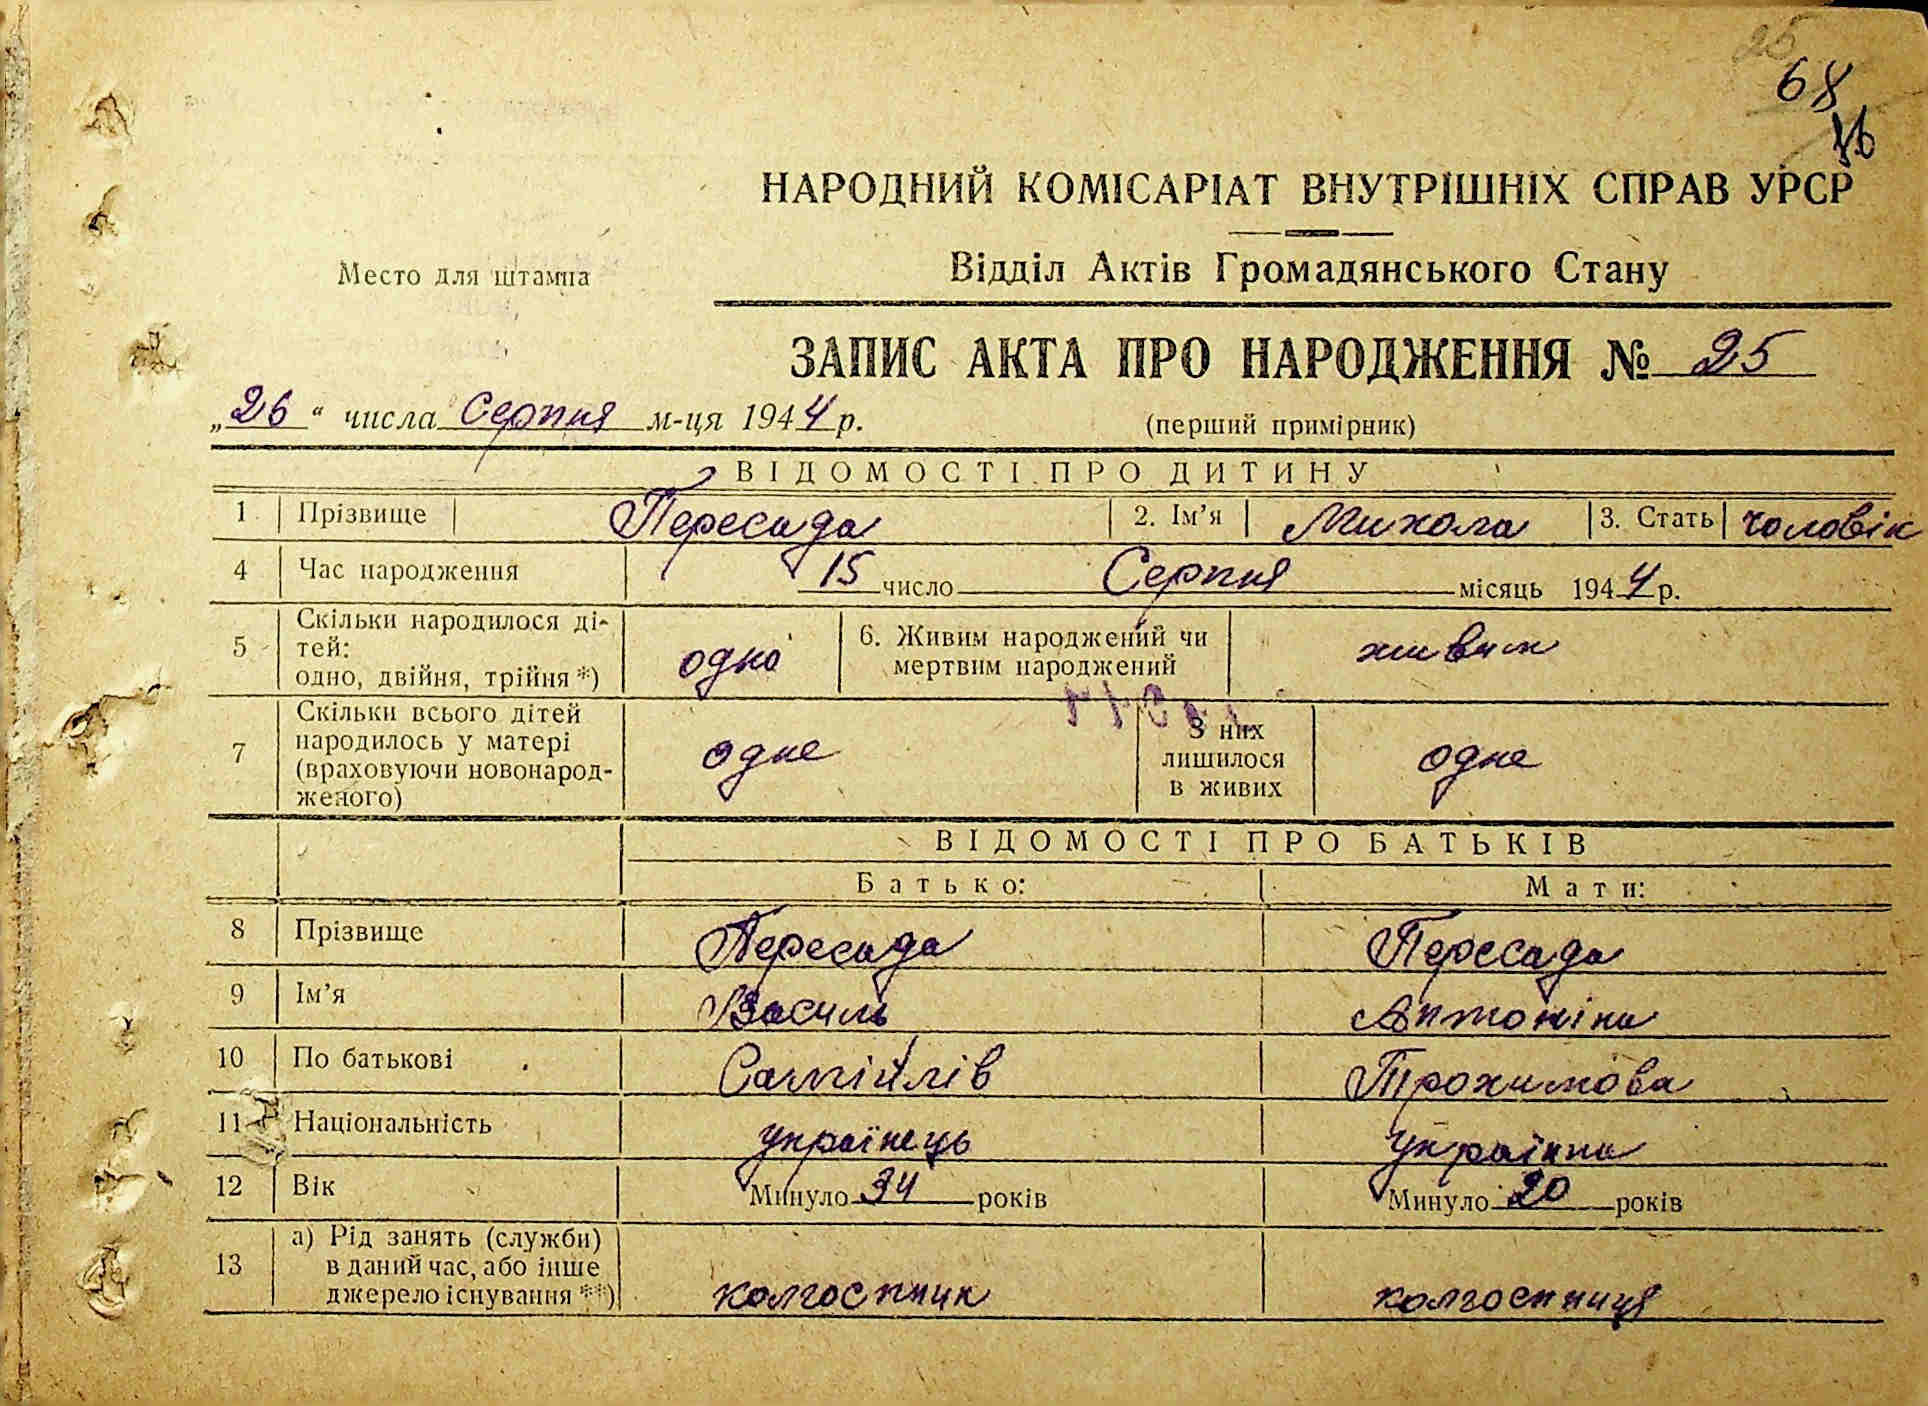 25
68
НАРОДНИЙ КОМІСАРІАТ ВНУТРІШНІХ СПРАВ УРСР
Место для штампа
Відділ Актів Громадянського Стану
ЗАПИС АКТА ПРО НАРОДЖЕННЯ № 25
„26“ числа Серпня м-ця 1944 р.
(перший примірник)
ВІДОМОСТІ ПРО ДИТИНУ
1 Прізвище Пересада 2. Ім'я Микола 3. Стать чоловік
4 Час народження 15 число Серпня місяць 1944 р.
5 Скільки народилося ді-
тей:
одно, двійня, трійня *)
одно
6. Живим народжений чи
мертвим народжений
живим
7 Скільки всього дітей
народилось у матері
(враховуючи новонарод-
женого)
одне
З них
лишилося
в живих
одне
ВІДОМОСТІ ПРО БАТЬКІВ
Батько: Мати:
8 Прізвище Пересада Пересада
9 Ім'я Василь Антоніна
10 По батькові Самійлів Трохимова
11 Національність українець українка
12 Вік Минуло 34 років Минуло 20 років
13 а) Рід занять (служби)
в даний час, або інше
джерело існування **)
колгоспник колгоспниця